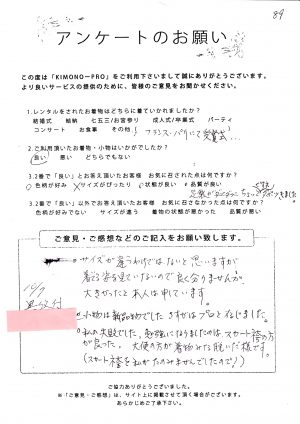 89
アンケートのお願い
この度は「KIMONO-PRO」をご利用下さいまして誠にありがとうございます。
より良いサービスの提供のために、皆様のご意見をお聞かせください。
1.レンタルをされたお着物はどちらに着ていかれましたか？
結婚式 結納 七五三/お宮参り 成人式/卒業式 パーティ
コンサート お食事 その他 フランス・パリにて
2.ご利用頂いたお着物・小物はいかがでしたか？
良い 悪い どちらでもない
3.2番で「良い」とお答え頂いたお客様 お気に召された点は何ですか？
色柄が好み サイズがぴったり 状態が良い 品質が良い
3.2番で「良い」以外でお答え頂いたお客様 お気に召さなかった点は何ですか？
色柄が好みでない サイズが違う 着物の状態が悪かった 品質が悪い
ご意見・ご感想などのご記入をお願い致します。
サイズが違うわけではないと思いますが
着る姿を見ていないので良く分りませんが
大きかったと本人は申しています。
小物は新品物でした さすがはプロと感じました。
私の失敗でした。勉強になりましたのは、スカート袴の方
が良った。大使の方が着物みな脱いだ様です。
(スカート袴を私がたのみませんでしたので)
ご協力ありがとうございました。
※「ご意見・ご感想」は、サイト上に掲載させて頂く場合がございます。
あらかじめご了承下さい。